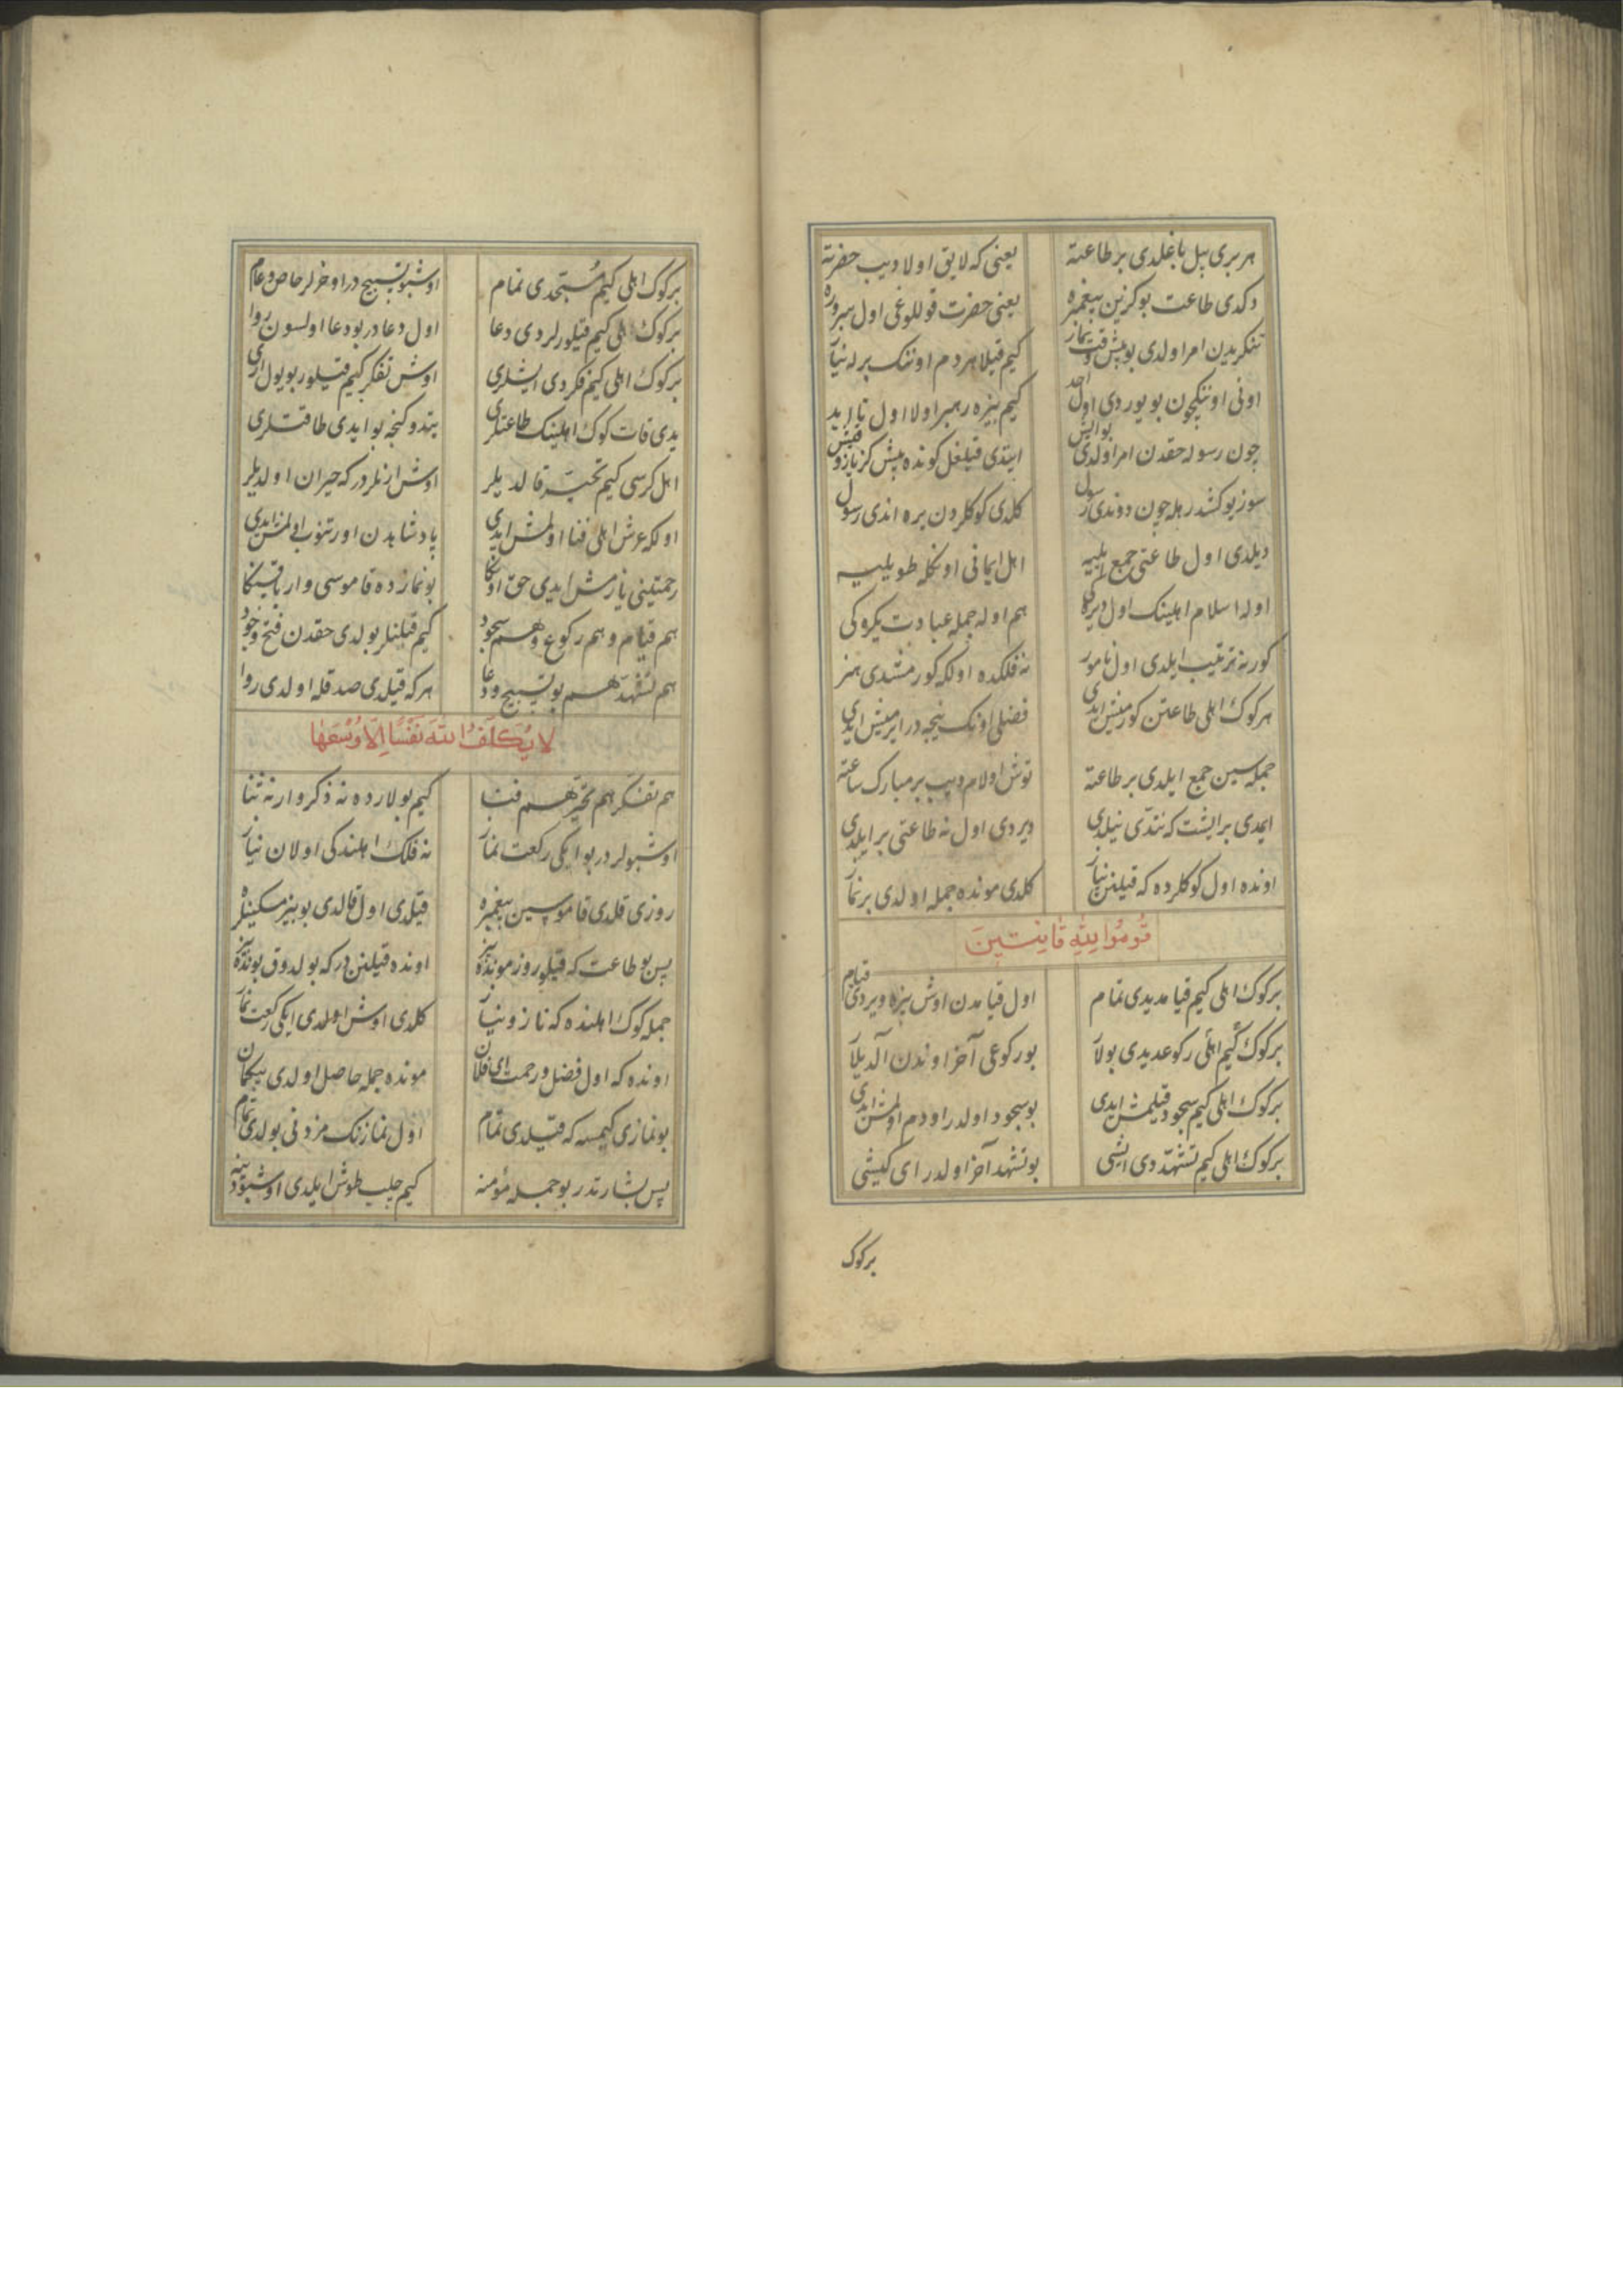 هر بری بیل باغلدی بر طاعته یعنی که لایق اولا دیب حضرته
دکدی طاعت بو کزین پیغمبره یعنی حضرت قوللوغی اول سروره
تنکریدن امر اولدی بو بش وقت نماز کیم قیلا هر دم اوننک برله نیاز
اونی اوننکچون بویوردی اول احد کیم بزه رهبر اولا اول تا ابد
چون رسوله حقدن امر اولدی بو ایش ایتدی قیلغل کونده بش کز یاز و قیش
سوز بوکشدر هله چون دوندی رسول کلدی کوکلردن یره اندی رسول
دیلدی اول طاعتی جمع ایلیه اهل ایمانی اونکله طویلیه
اوله اسلام اهلینک اول دیرکی هم اوله جمله عبادت یکرکی
کور نه ترتیب ایلدی اول نامور نه فلکده اولکه کورمشدی هنر
هر کوک اهلی طاعتن کورمیش ایدی فضلی اونک نیجه در ایرمیش ایدی
جمله سین جمع ایلدی بر طاعته توش اولام دییب بر مبارک ساعته
ایمدی بر ایشت که نتدی نیلدی دیردی اول نه طاعتی بر ایلدی
اونده اول کوکلرده که قیلنن نیاز کلدی مونده جمله اولدی بر نماز
قُومُوا لِلّٰهِ قَانِتِينَ
بر کوک اهلی کیم قیامدیدی تمام اول قیامدن اوش بزه ویردی قیام
بر کوک کیم اهلی رکوعدیدی بولا بو رکوعی آخر اوندن آلدیلا
بر کوک اهلی کیم سجود قیلمش ایدی بو سجود اولدر اودم اولمش ایدی
بر کوک اهلی کیم تشهددی ایشی بو تشهد آخر اولدر ای کیشی
بر کوک
بر کوک اهلی کیم مُسبّحدی تمام اوشبو تسبیح در اوخرلر خاص و عام
بر کوک اهلی کیم قیلورلردی دعا اول دعادر بو دعا اولسون روا
بر کوک اهلی کیم فکردی ایشلری اوش تفکر کیم قیلور بو یول اری
یدی قات کوک اهلینک طاعتلری یتدوکنجه بو ایدی طاقتلری
اهل کرسی کیم تحیّرقالدیلر اوش انلردر که حیران اولدیلر
اولکه عرش اهلی فنا اولمش ایدی پادشاهدن اورتنوب اولمش ایدی
رحمتینی یازمش ایدی حق اونکا بو نمازده قاموسی وار باقسنکا
هم قیام و هم رکوع و هم سجود کیم قیلنلر بولدی حقدن فتح و جود
هم تشهد هم بو تسبیح و دعا هر که قیلدی صدقله اولدی روا
لَا يُكَلِّفُ اللّٰهُ نَفْسًا إِلَّا وُسْعَهَا
هم تفکر هم تحیر هم فنا کیم بولارده نه ذکر وار نه ثنا
اوشبولردر بو ایکی رکعت نماز نه فلک اهلندکی اولان نیاز
روزی قلدی قاموسین پیغمبره قیلدی اول قالدی بو بیز مسکینلره
پس بو طاعت که قیلوروز مونده بیز اونده قیلنن در که بولدوق بونده بیز
جمله کوک اهلنده که ناز و نیاز کلدی اوش اولدی ایکی رکعت نماز
اونده که اول فضل و رحمت ای فلان مونده جمله حاصل اولدی بیکمان
بو نمازی کیمسه که قیلدی تمام اول نمازنک مزدنی بولدی تمام
پس بشارتدر بو جمله مؤمنه کیم حلب طوش ایلدی اوشبو دینه